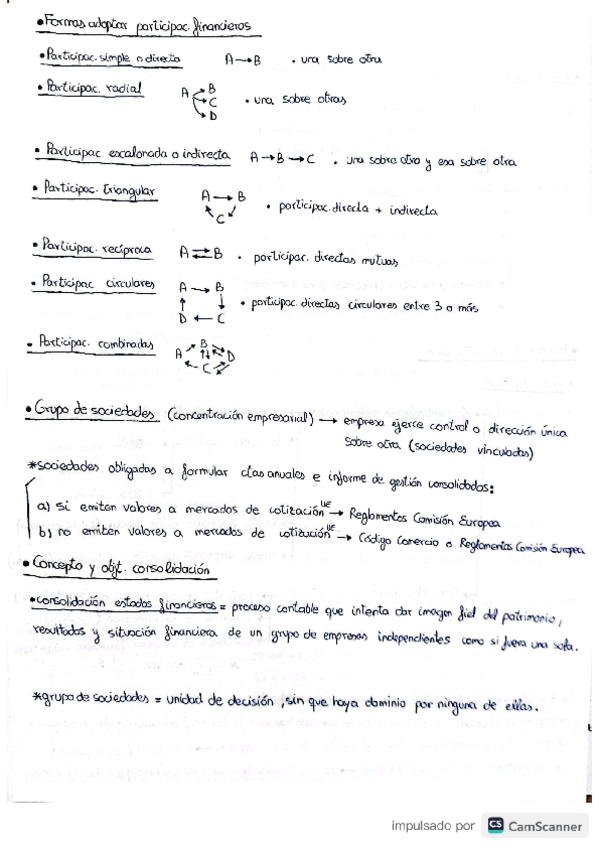 • Formas adoptar participac. financieros
• Participac. simple o directa A → B • una sobre otra
• Participac. radial A B C D • una sobre otras
• Participac. escalonada o indirecta A → B → C • una sobre otra y esa sobre otra
• Participac. triangular A → B C • particpac. directa + indirecta
• Participac. recíproca A ⇄ B • particpac. directas mutuas
• Particpac circulares A → B • particpac. directas circulares entre 3 o más
D ← C
• Participac. combinadas A B C D
• Grupo de sociedades (concentración empresarial) → empresa ejerce control o dirección única
sobre otra (sociedades vinculadas)
*sociedades obligadas a formular anuales e informe de gestión consolidados:
a) si emiten valores a mercados de cotización UE → Reglamentos Comisión Europea
b) no emiten valores a mercados de cotización UE → Código Comercio o Reglamentos Comisión Europea
• Concepto y objt. consolidación
• consolidación estados financieros = proceso contable que intenta dar imagen fiel del patrimonio,
resultados y situación financiera de un grupo de empresas independientes como si fuera una sola.
*grupo de sociedades = unidad de decisión, sin que haya dominio por ninguna de ellas.
impulsado por CS CamScanner